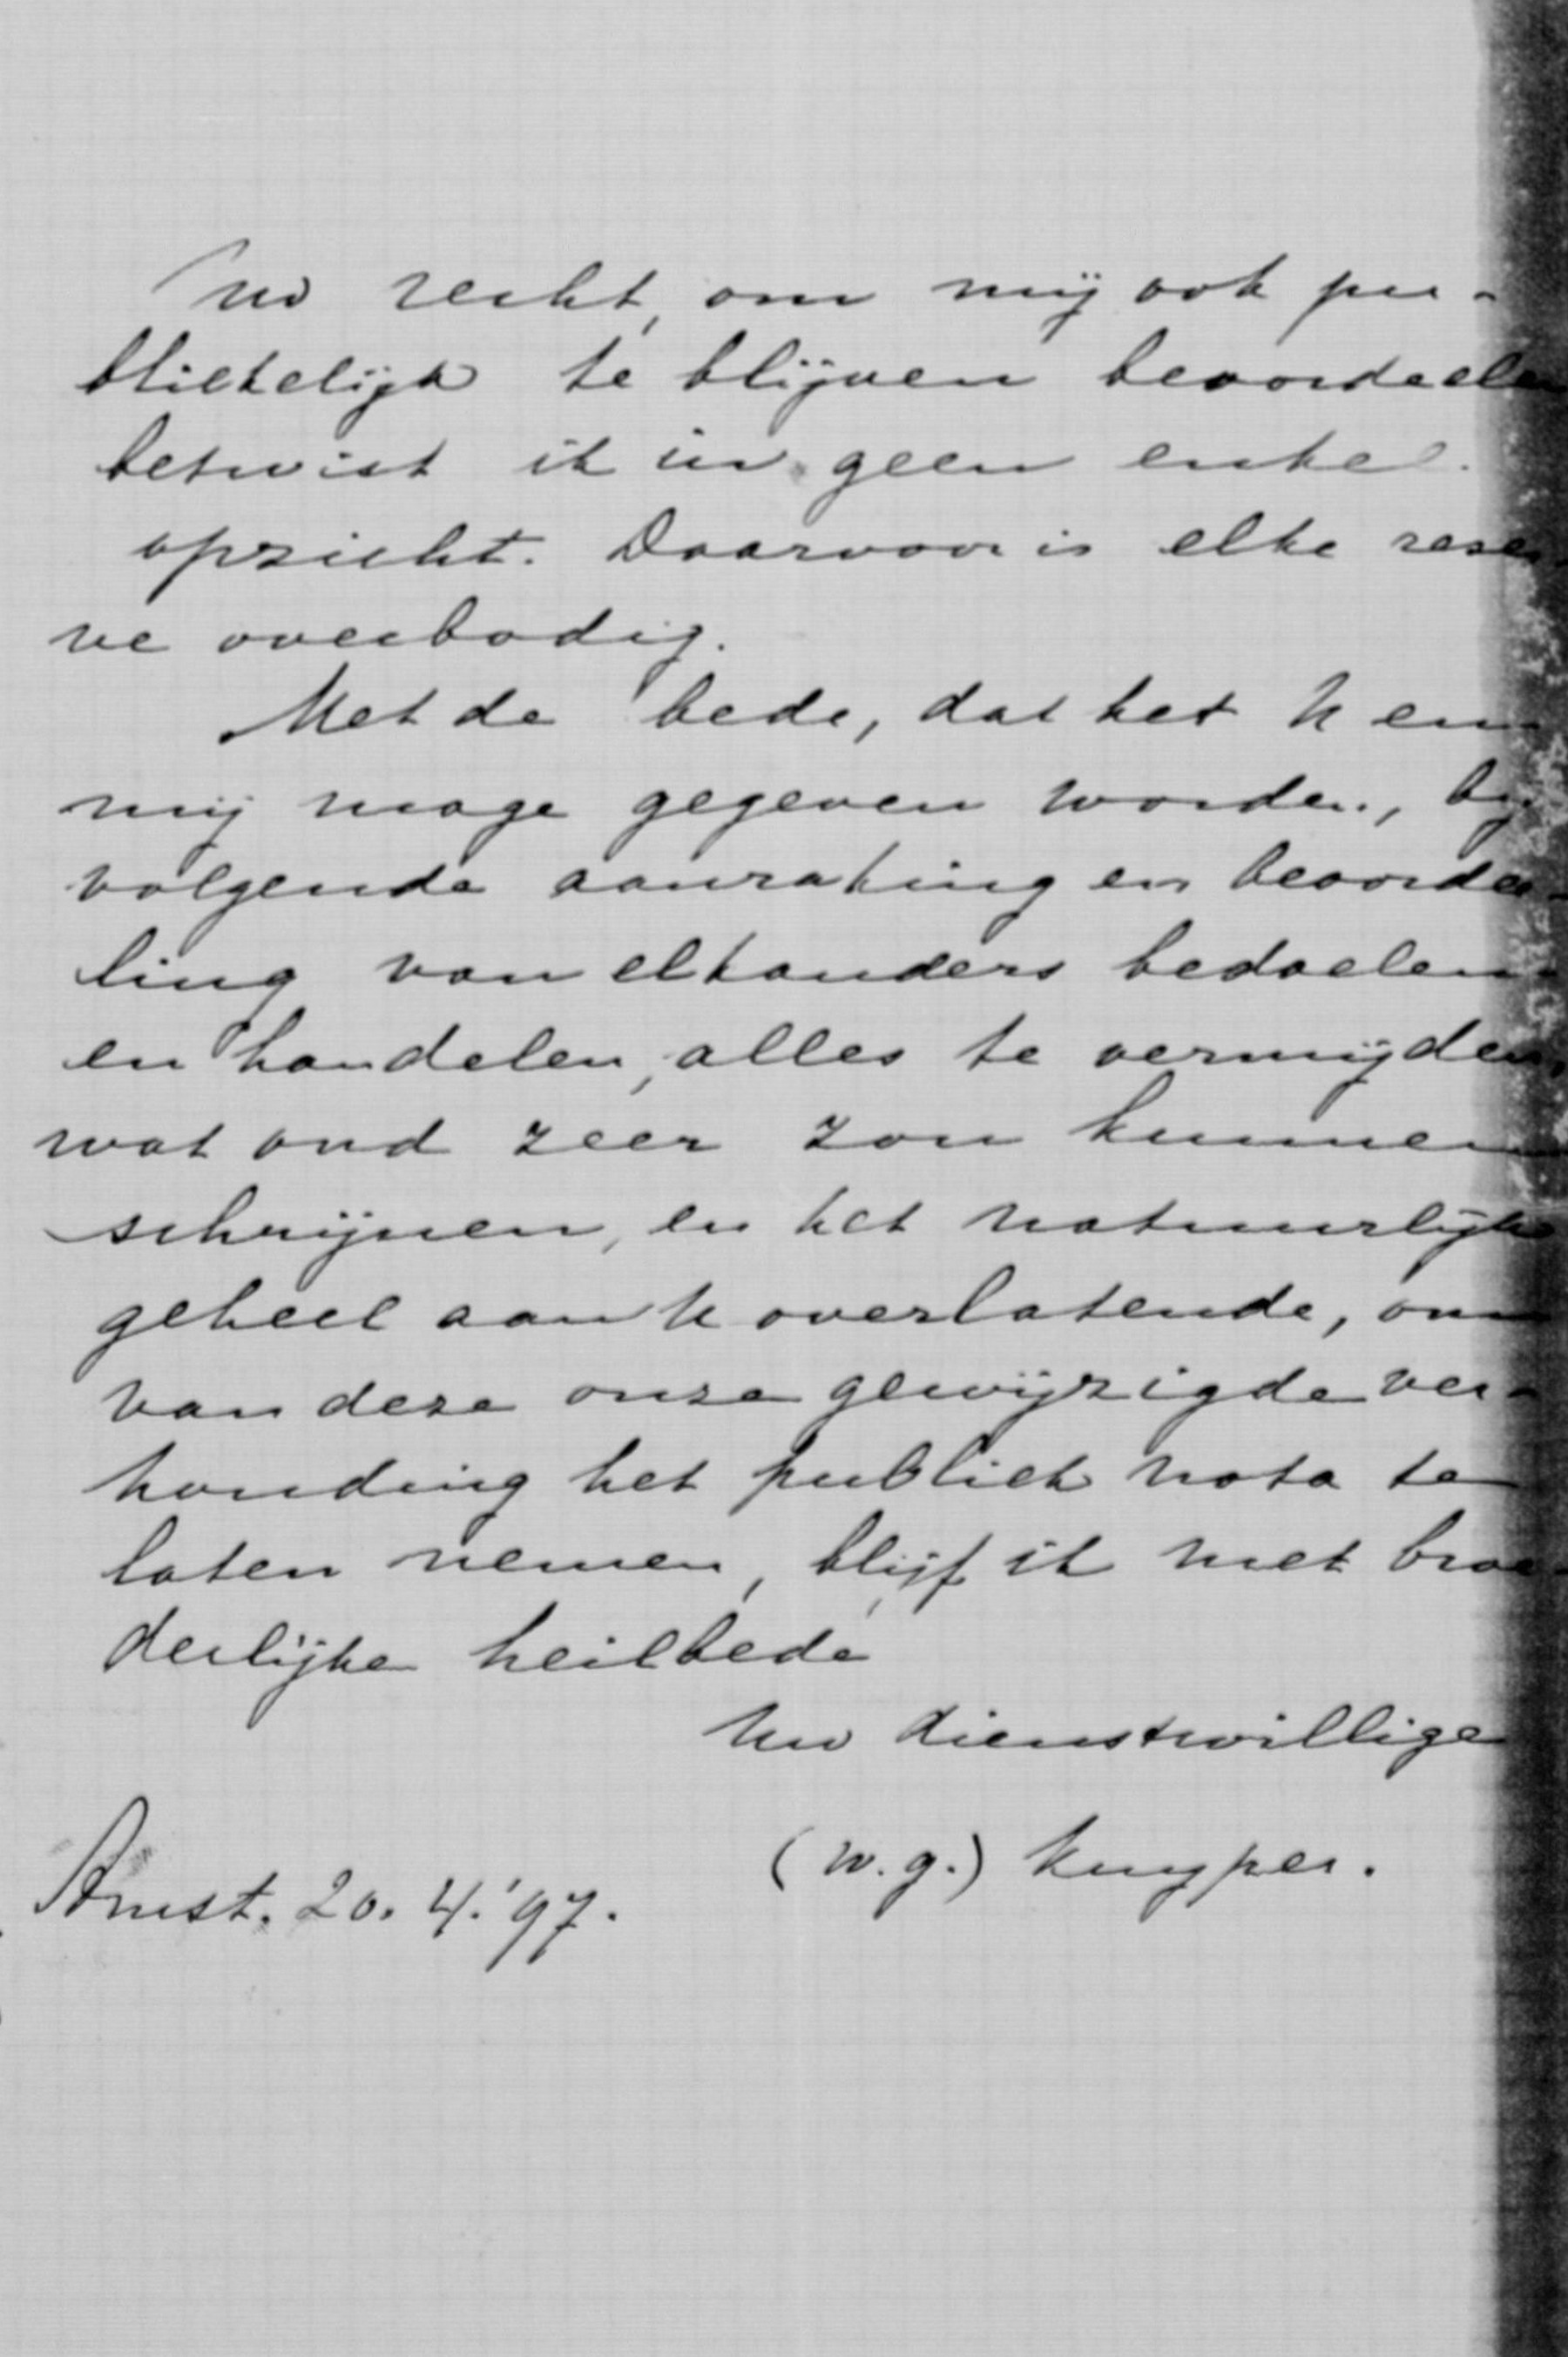 Uw recht, om mij ook pu-
bliekelijk te blijven beoordeelen
betwist ik in geen enkel
opzicht. Daarvoor is elke reser
ve overbodig.
Met de bede, dat het U en
mij moge gegeven worden, bij
volgende aanraking en beoordee-
ling van elkanders bedoelen
en handelen, alles te vermijden,
wat oud zeer zou kunnen
schrijnen, en het natuurlijk
geheel aan U overlatende, om
van deze onze gewijzigde ver-
houding het publiek nota te
laten nemen, blijf ik met broe
derlijke heilbede
Uw dienstwillige
(w.g.) Kuyper.
Amst. 20. 4. '97.